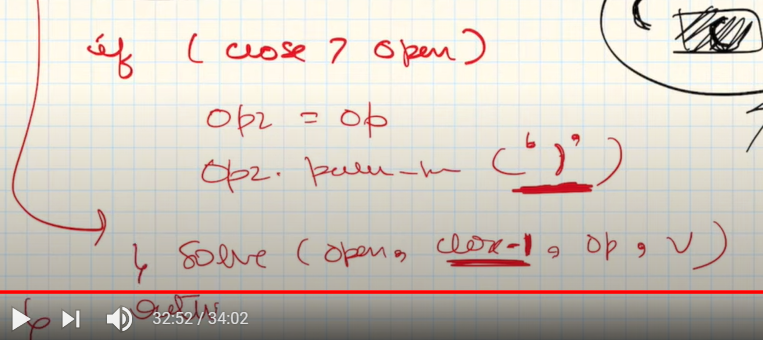 if ( close > open )
op2 = op
op2. push_back ( ')' )
solve ( open, close-1, op, v )
32:52 / 34:02